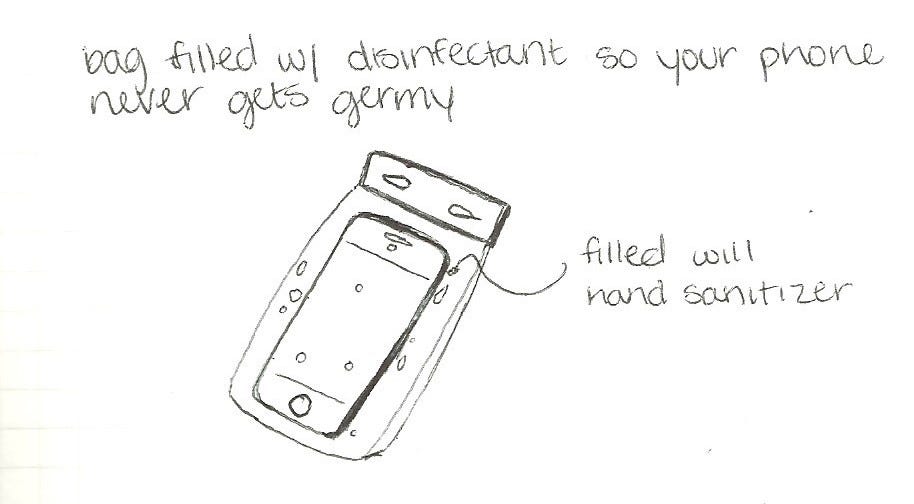 bag filled w/ disinfectant so your phone
never gets germy
filled will
hand sanitizer